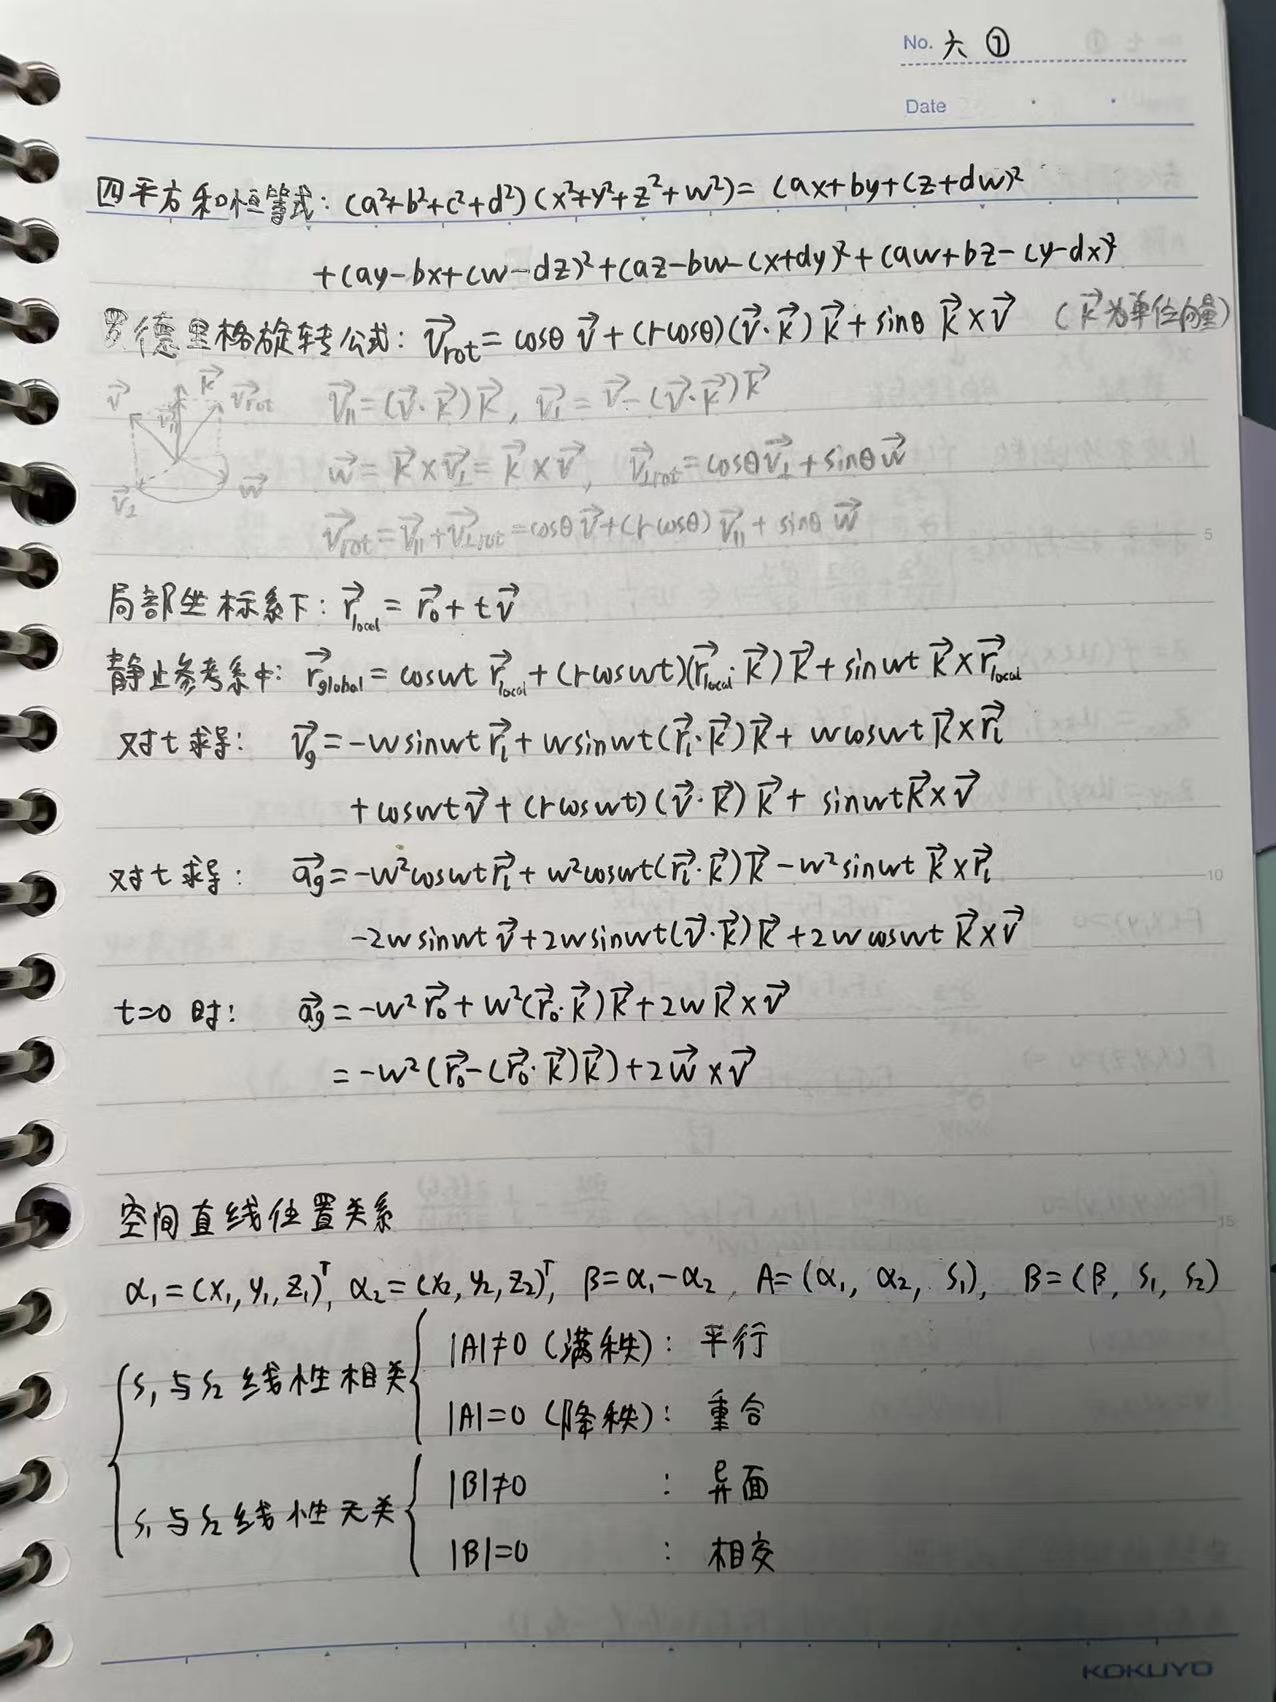 No. 六 ①
Date
四平方和恒等式: (a²+b²+c²+d²)(x²+y²+z²+w²)= (ax+by+cz+dw)²
+(ay-bx+cw-dz)²+(az-bw-cx+dy)²+(aw+bz-cy-dx)²
罗德里格旋转公式: v⃗rot = cosθ v⃗ + (1-cosθ)(v⃗·k⃗)k⃗ + sinθ k⃗×v⃗ (k⃗为单位向量)
v⃗ v⃗∥ k⃗ v⃗rot v⃗⊥ w⃗
v⃗∥=(v⃗·k⃗)k⃗, v⃗⊥= v⃗-(v⃗·k⃗)k⃗
w⃗ = k⃗×v⃗⊥= k⃗×v⃗, v⃗⊥rot=cosθv⃗⊥+sinθw⃗
v⃗rot=v⃗∥+v⃗⊥rot=cosθv⃗+(1-cosθ)v⃗∥+sinθ w⃗
局部坐标系下: r⃗local= r⃗₀+tv⃗
静止参考系中: r⃗global= coswt r⃗local+(1-coswt)(r⃗local·k⃗)k⃗+sinwt k⃗×r⃗local
对t求导: v⃗g=-wsinwt r⃗l+wsinwt(r⃗l·k⃗)k⃗+ wcoswt k⃗×r⃗l
+coswt v⃗+(1-coswt)(v⃗·k⃗)k⃗+ sinwt k⃗×v⃗
对t求导: a⃗g=-w²coswt r⃗l+w²coswt(r⃗l·k⃗)k⃗-w²sinwt k⃗×r⃗l
-2wsinwt v⃗+2wsinwt(v⃗·k⃗)k⃗+2wcoswt k⃗×v⃗
t=0时: a⃗g=-w²r⃗₀+w²(r⃗₀·k⃗)k⃗+2wk⃗×v⃗
=-w²(r⃗₀-(r⃗₀·k⃗)k⃗)+2w⃗×v⃗
空间直线位置关系
α₁=(x₁,y₁,z₁)ᵀ, α₂=(x₂,y₂,z₂)ᵀ, β=α₁-α₂, A=(α₁, α₂, s₁), B=(β, s₁, s₂)
s₁与s₂线性相关
|A|≠0 (满秩): 平行
|A|=0 (降秩): 重合
s₁与s₂线性无关
|B|≠0 : 异面
|B|=0 : 相交
5
10
15
KOKUYO